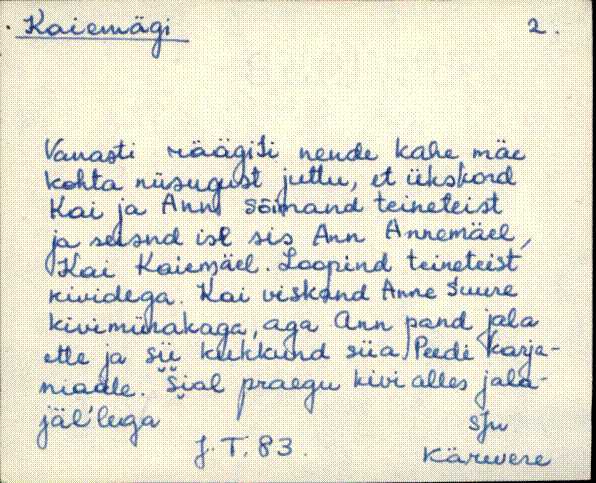 Kaiemägi 2.
Vanasti räägiti nende kahe mäe
kohta niisugust juttu, et ükskord
Kai ja Ann sõimand teineteist
ja seisnd ise sis Ann Annemäel,
Kai Kaiemäel. Loopind teineteist
kividega. Kai viskand Anne suure
kivimürakaga, aga Ann pand jala
ette ja sii kukkund siia Peedi karja-
maale. Sial praegu kivi alles jala-
jäl'lega
J. T. 83. Sju
Kärevere